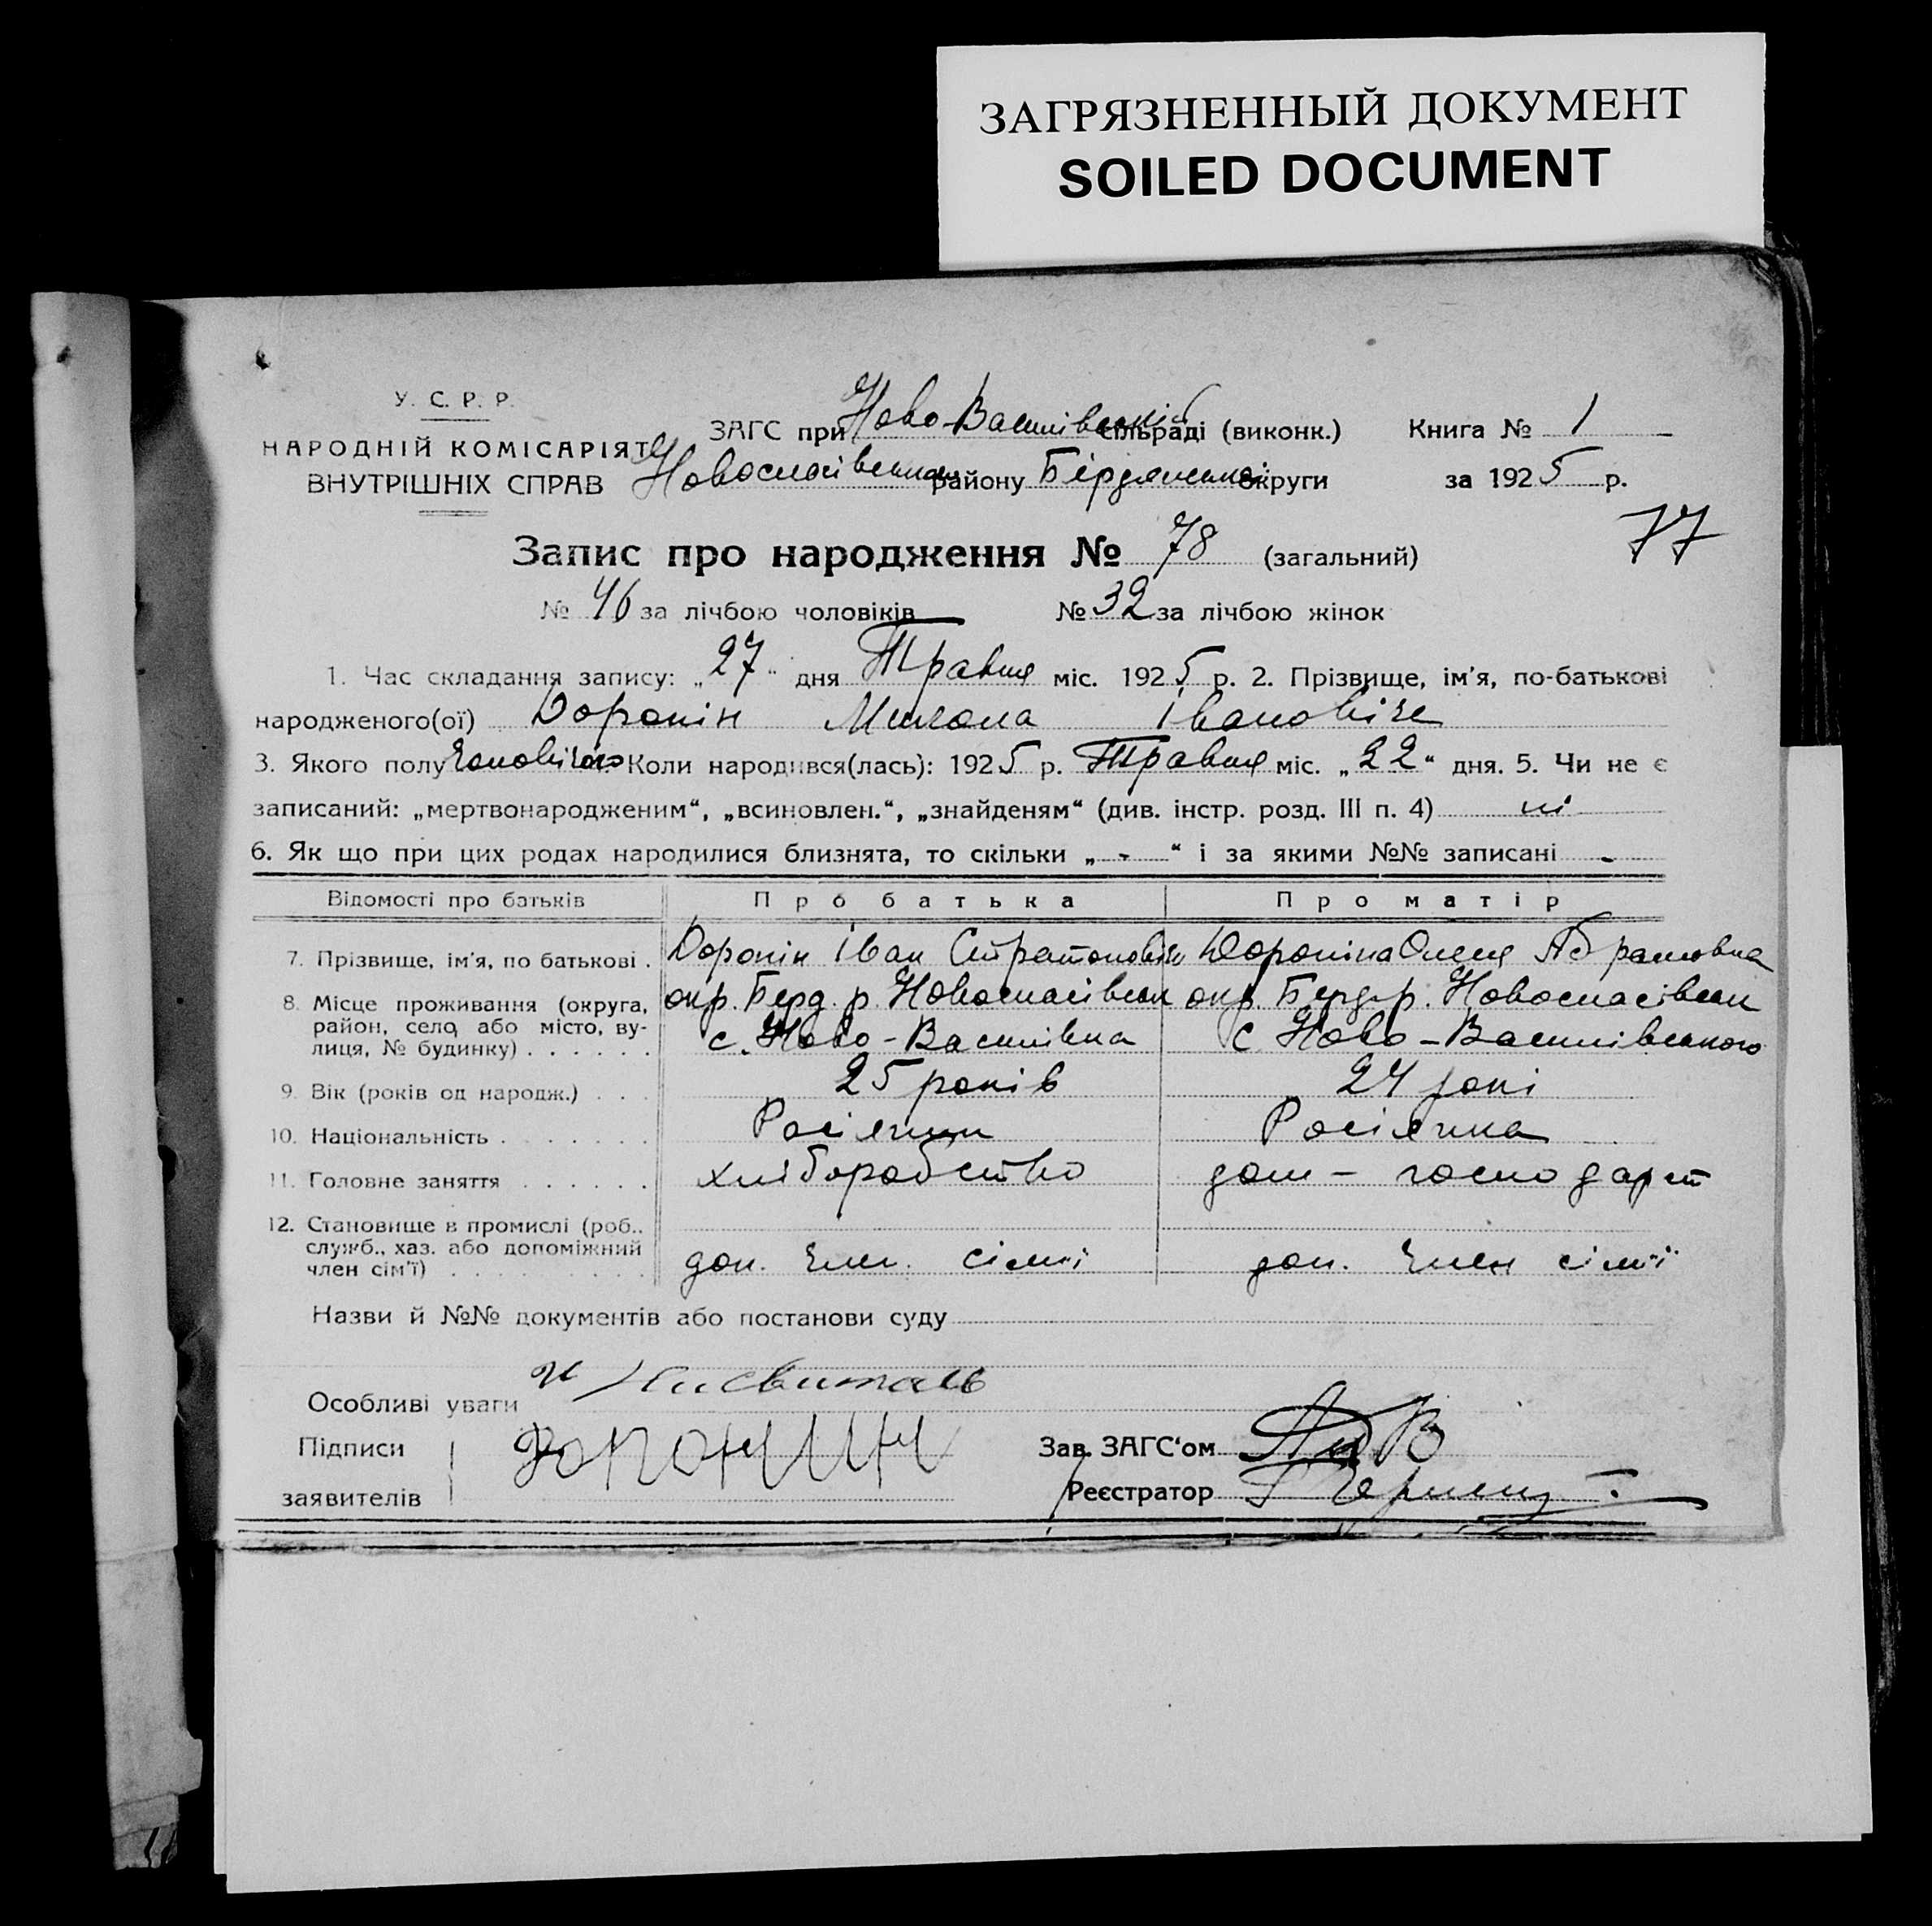 ЗАГРЯЗНЕННЫЙ ДОКУМЕНТ
SOILED DOCUMENT
У. С. Р. Р.
НАРОДНІЙ КОМІСАРІЯТ
ВНУТРІШНІХ СПРАВ
ЗАГС при Ново-Василівській сільраді (виконк.) Книга № 1
Новоспасівськ району Бердянської округи за 1925 р.
77
Запис про народження № 78 (загальний)
№ 46 за лічбою чоловіків № 32 за лічбою жінок
1. Час складання запису: „27“ дня Травня міс. 1925 р. 2. Прізвище, ім'я, по-батькові
народженого(ої) Доронін Микола Івановіч
3. Якого полу Коли народився(лась): 1925 р. Травня міс. „22“ дня. 5. Чи не є
записаний: „мертвонародженим“, „всиновлен.“, „знайденям“ (див. інстр. розд. III п. 4) ні
6. Як що при цих родах народилися близнята, то скільки „ - “ і за якими №№ записані -
Відомості про батьків Про батька Про матір
7. Прізвище, ім'я, по батькові . Доронін Іван Стратоновіч Дороніна Олена Абрамовна
8. Місце проживання (округа, район, село або місто, вулиця, № будинку) . . . . . . окр. Берд. р. Новоспасівськ окр. Берд. р. Новоспасівськ
с. Ново-Василівка с. Ново-Василівського
9. Вік (років од народж.) . . . 25 років 24 рокі
10. Національність . . . . . . . Росіянин Росіянка
11. Головне заняття . . . . . . хліборобство дом- господарст
12. Становище в промислі (роб., служб., хаз. або допоміжний член сім'ї) . . . . . . . . . доп. член. сімї доп. член сім'ї
Назви й №№ документів або постанови суду
Особливі уваги
Підписи Доронин Зав. ЗАГС'ом
заявителів Реєстратор